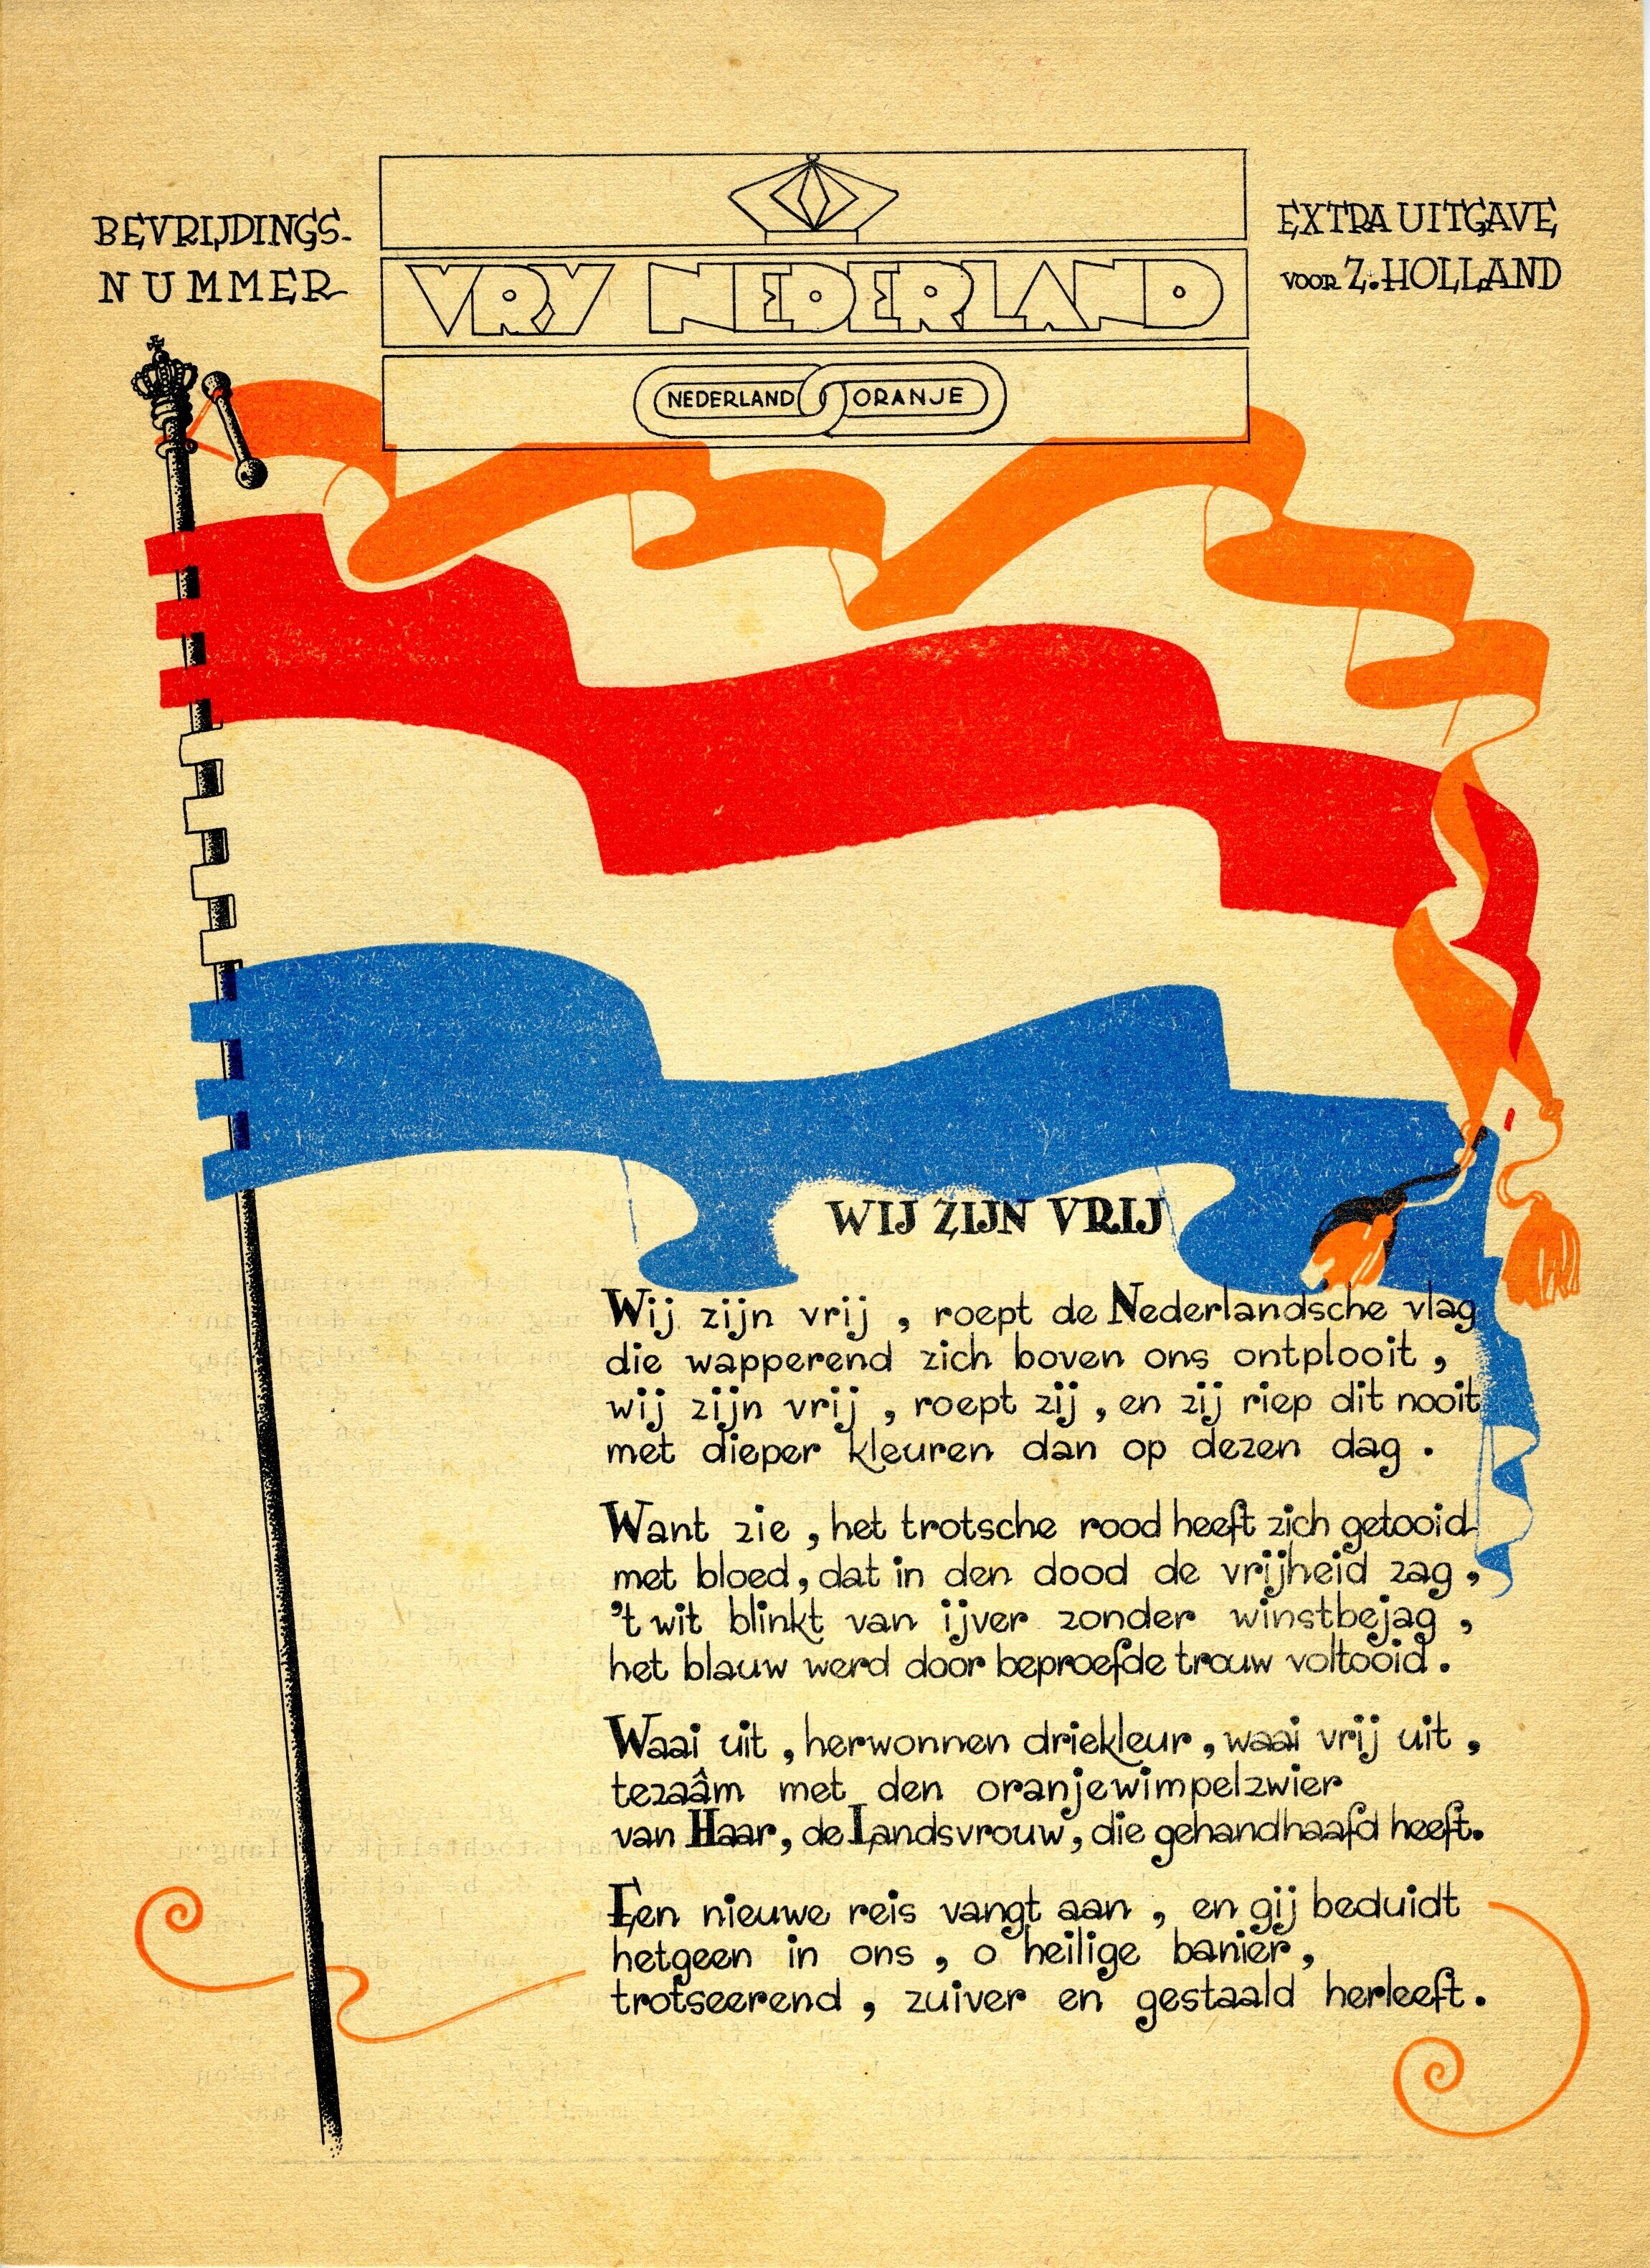 BEVRIJDINGS-
NUMMER
VRY NEDERLAND
NEDERLAND ORANJE
EXTRA UITGAVE
VOOR Z.HOLLAND
WIJ ZIJN VRIJ
Wij zijn vrij, roept de Nederlandsche vlag
die wapperend zich boven ons ontplooit,
wij zijn vrij, roept zij, en zij riep dit nooit
met dieper kleuren dan op dezen dag.
Want zie, het trotsche rood heeft zich getooid
met bloed, dat in den dood de vrijheid zag,
't wit blinkt van ijver zonder winstbejag,
het blauw werd door beproefde trouw voltooid.
Waai uit, herwonnen driekleur, waai vrij uit,
tezaâm met den oranjewimpelzwier
van Haar, de Landsvrouw, die gehandhaafd heeft.
Een nieuwe reis vangt aan, en gij beduidt
hetgeen in ons, o heilige banier,
trotseerend, zuiver en gestaald herleeft.